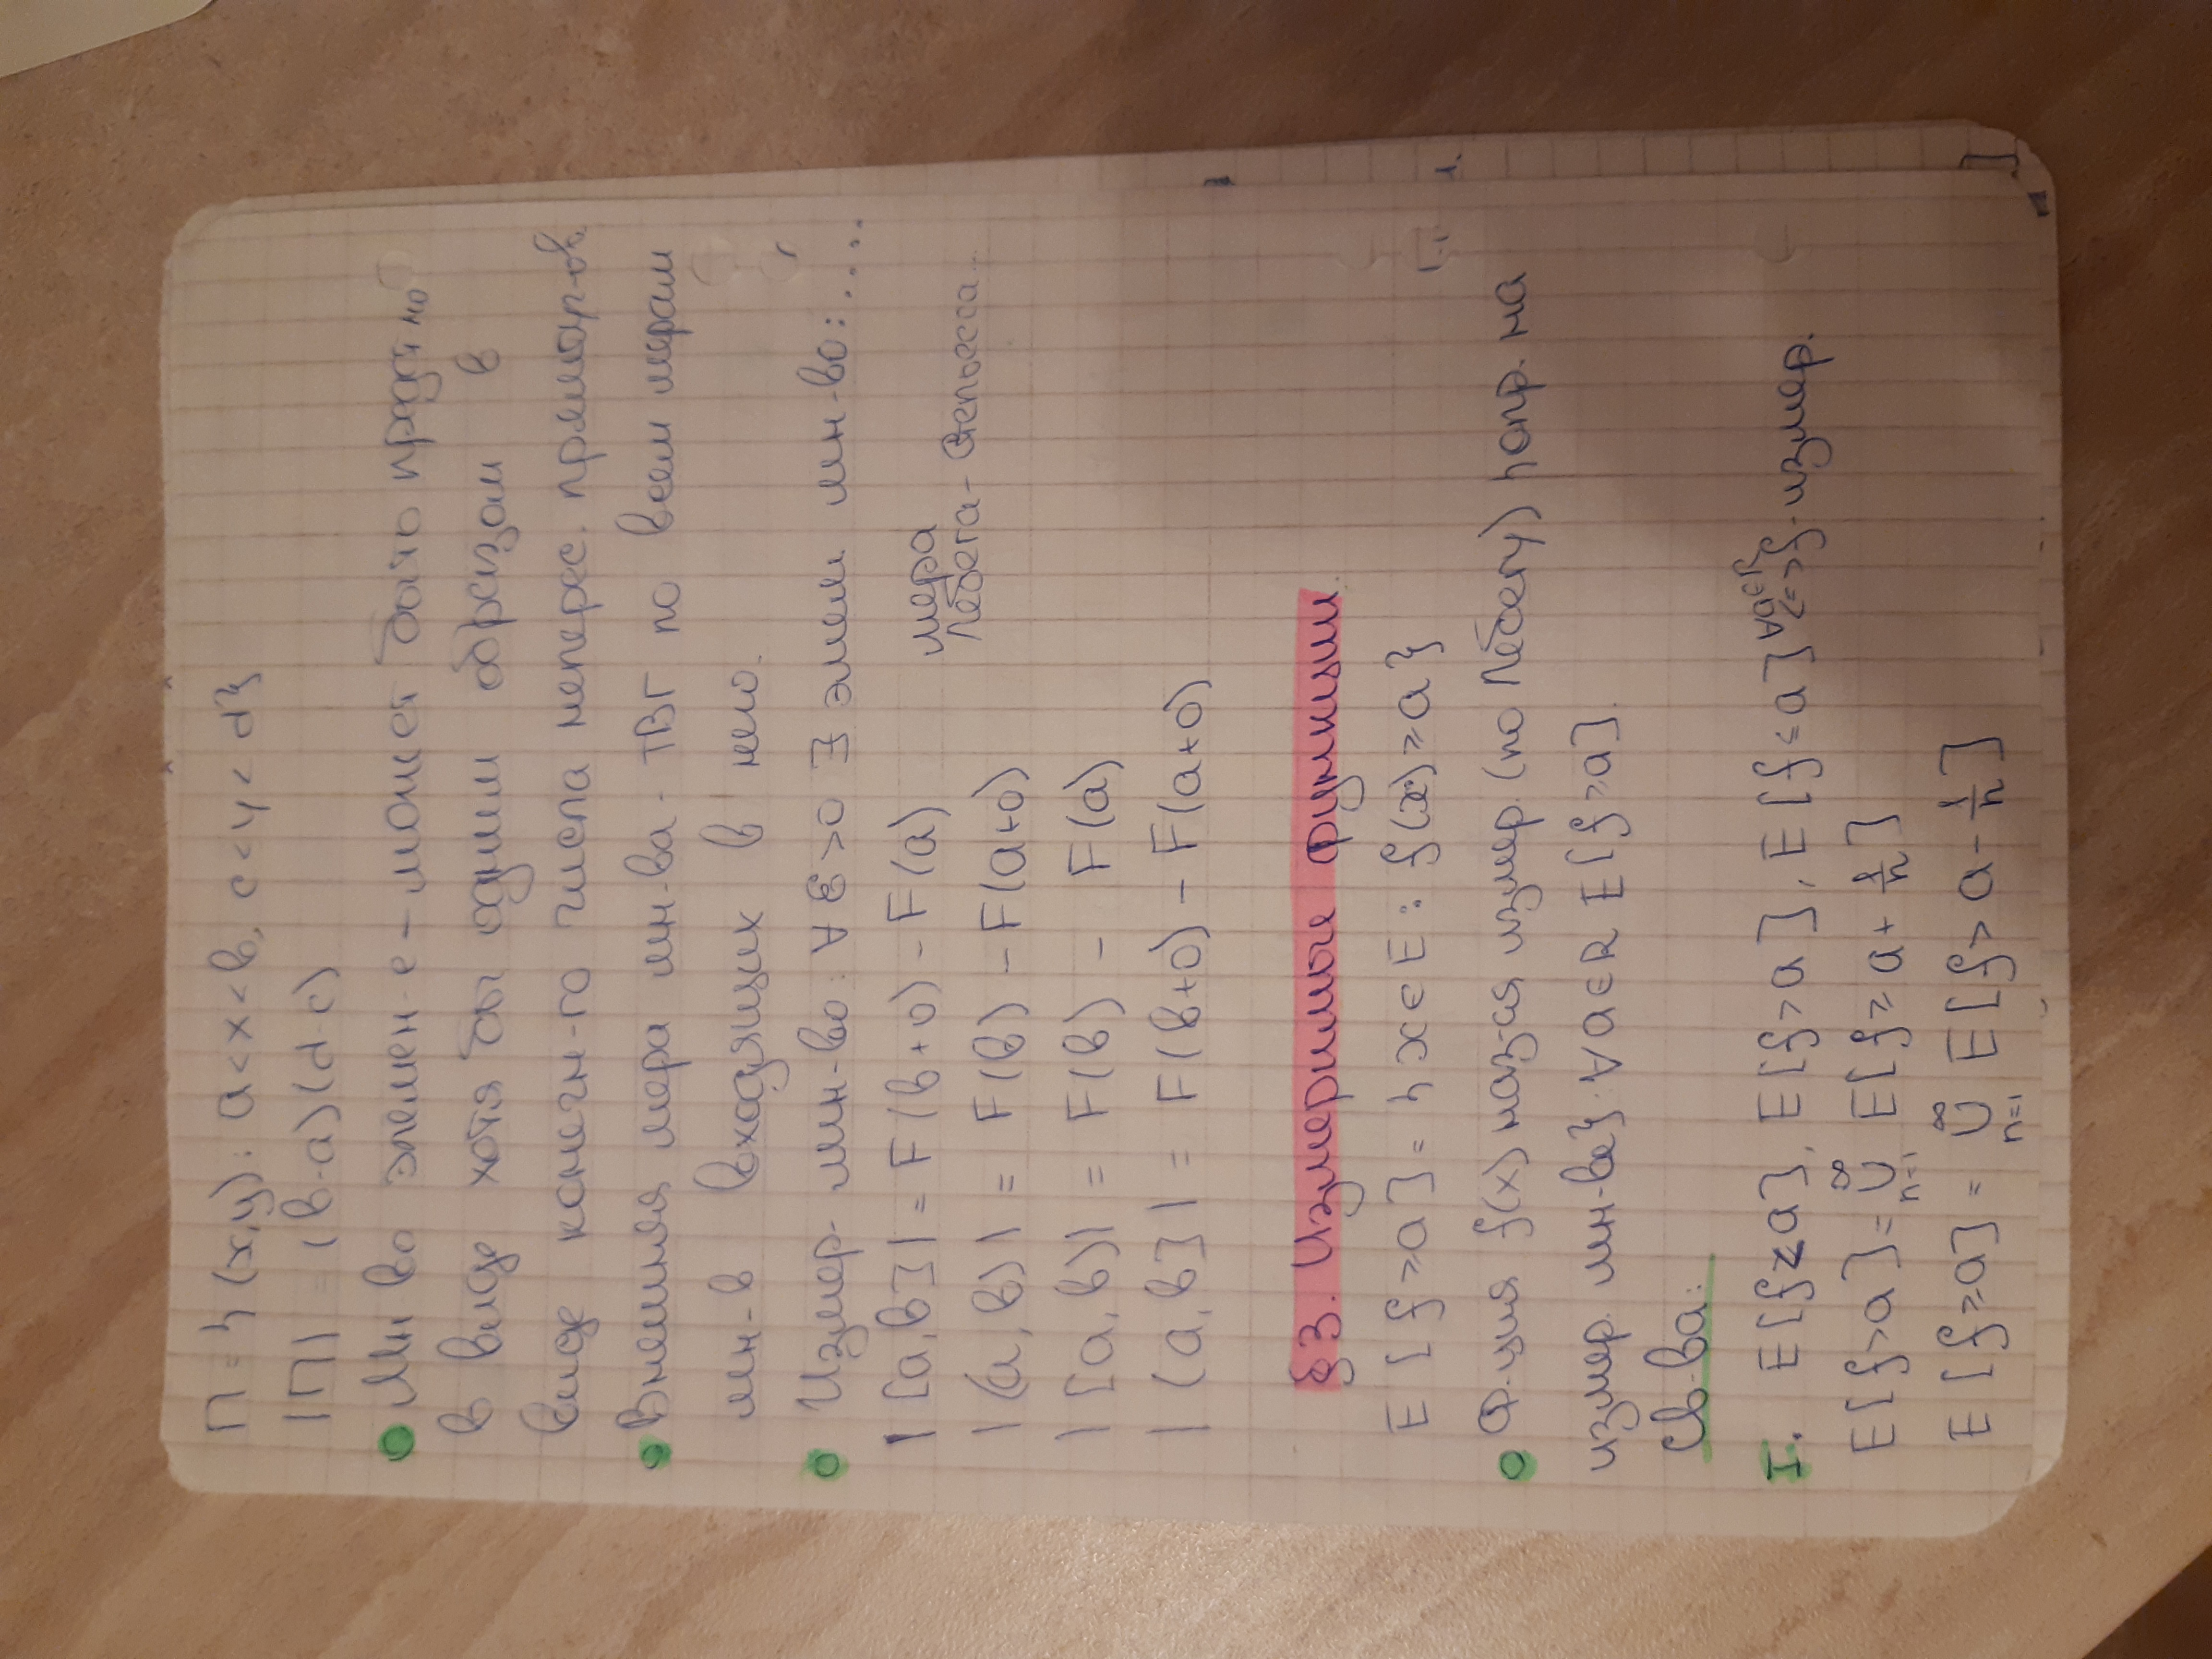 П = {(x,y): a<x<b, c<y<d}
|П| = (b-a)(d-c)
Мн-во элемен-е - может быто предст-но
в виде хотя бы одним образом в
виде конечн-го числа неперес. прямоуг-ов.
Внешняя мера мн-ва - ТВГ по всем мерам
мн-в входящих в него.
Измер. мн-во: ∀ε>0 ∃ элем мн-во: ....
|[a,b]| = F(b+0) - F(a)
мера
Лебега-Стилтьеса...
|(a,b)| = F(b) - F(a+0)
|[a,b)| = F(b) - F(a)
|(a,b]| = F(b+0) - F(a+0)
§3. Измеримые функции.
E[f≥a] = {x∈E: f(x)≥a}
Ф-ция f(x) наз-ся измер. (по Лебегу) {опр. на
измер. мн-ве}. ∀a∈R E[f>a].
Св-ва:
I. E[f≥a], E[f>a], E[f≤a] ∀a∈R <=> f-измер.
E[f>a] = ∪ₙ₌₁^∞ E[f≥a+1/n]
E[f≥a] = ∪ₙ₌₁^∞ E[f>a-1/n]